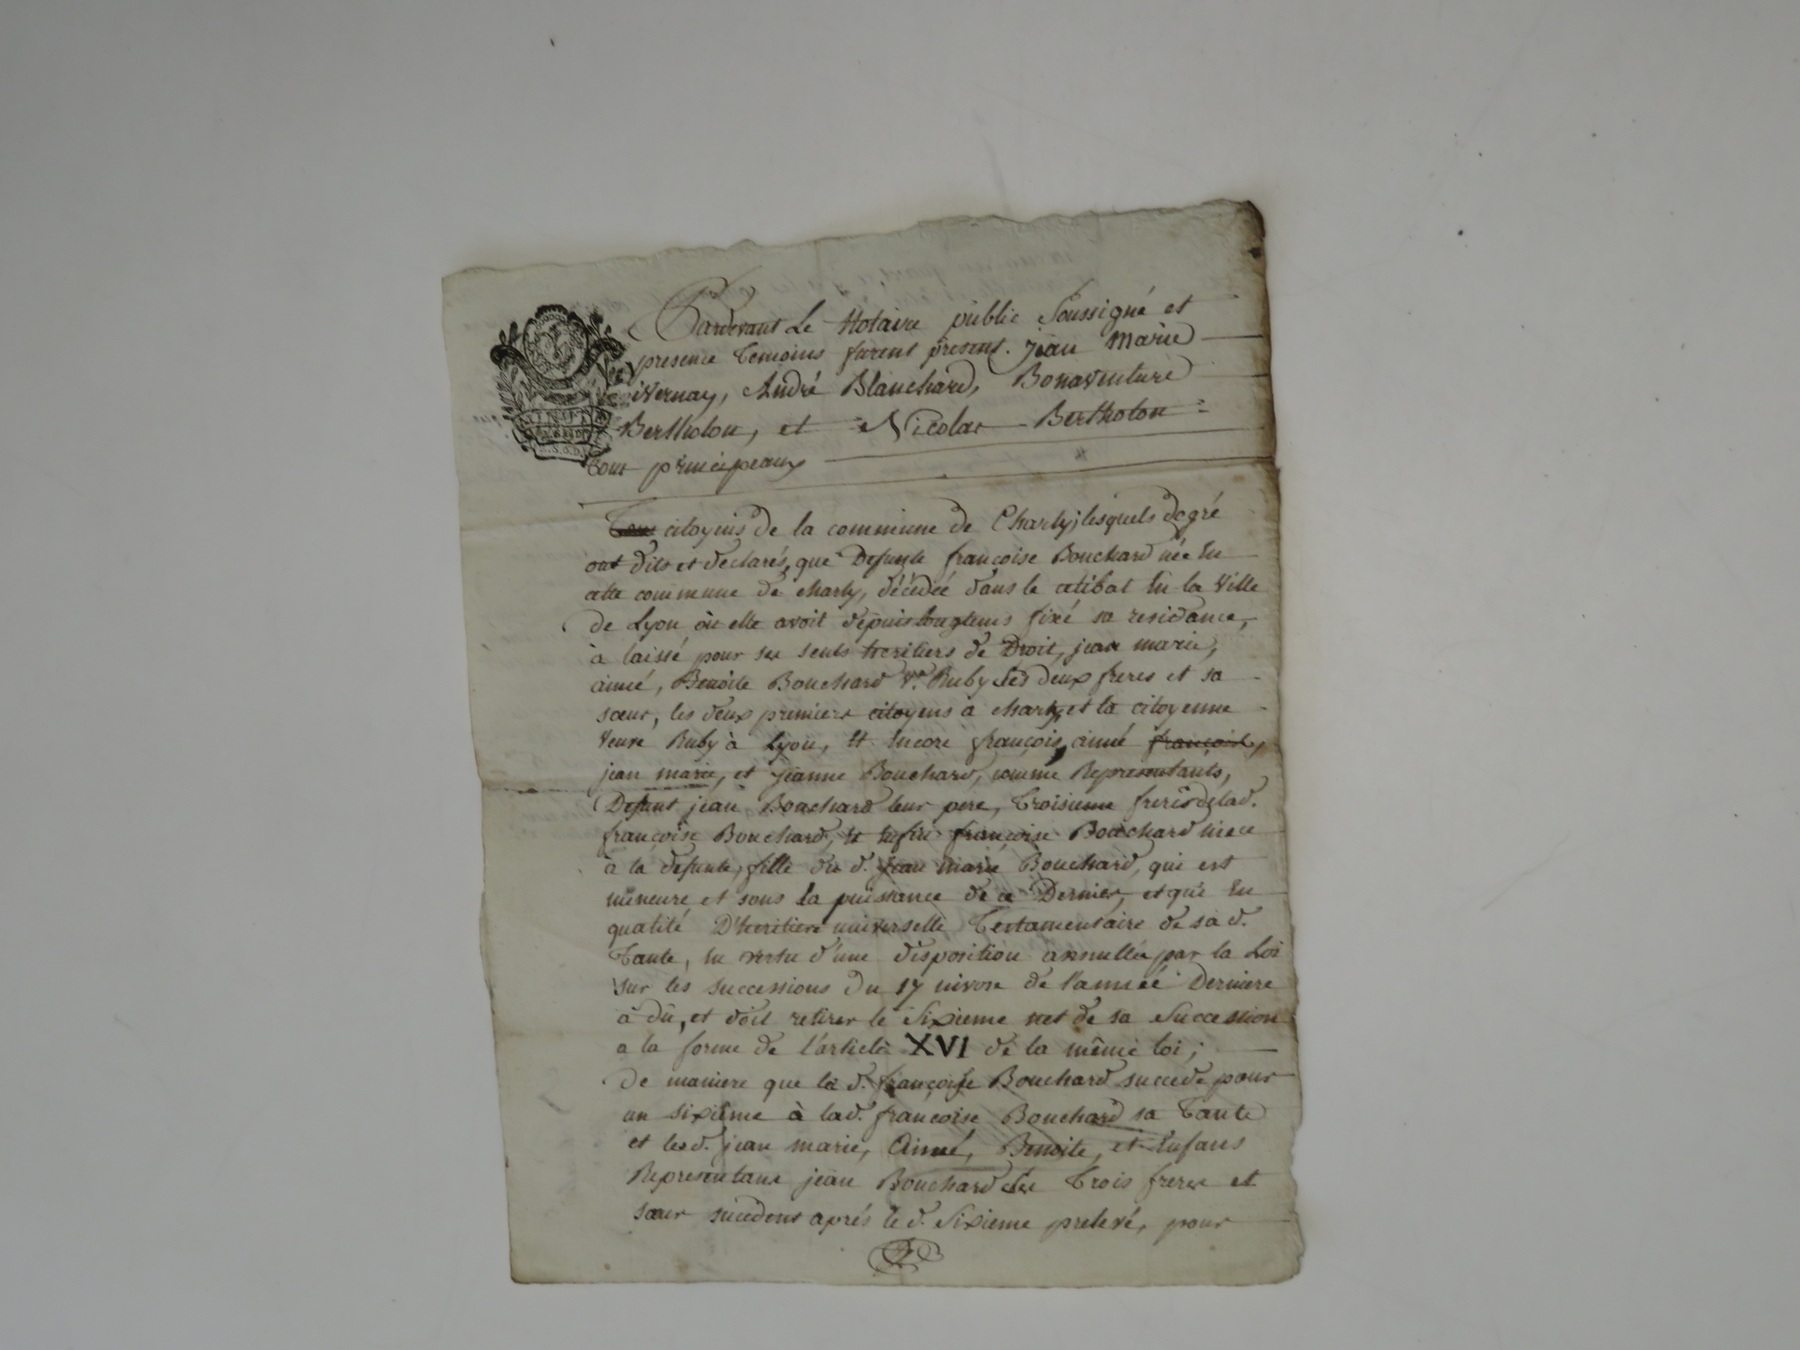 Pardevant Le Notaire public Soussigné et
presence temoins furent present. jean Marie
Vernay, André Blanchard, Bonaventure
Bertholon, et Nicolas Bertholon
tous principeaux
Tous citoyens de la commune de Charly, lesquels degré
ont dits et déclarés, que Defunte françoise Bouchard née En
cette commune de charly, décédée dans le celibat En la Ville
de Lyon où elle avoit depuis longtems fixé sa residance,
à laissé pour ses seuls heritiers de Droit, jean marie,
aimé, Benoite Bouchard Ve. Ruby ses deux freres et sa
sœur, les deux premiers citoyens à charly et la citoyenne
Veuve Ruby à Lyon, Et Encore françois, aimé françois,
jean marie, et jeanne Bouchard, comme Representants,
Defunt jean Bouchard leur pere, troisieme frere de lad.
françoise Bouchard, Et Enfin françoise Bouchard niece
à la defunte, fille du d. jean marie Bouchard, qui est
mineure et sous la puissance de ce Dernier, et qui En
qualité D'heritiere universelle Testamentaire de sa d.
Tante, En vertu d'une disposition annullée par la Loi
sur les successions du 17 nivose de l'année Derniere
à dû, et doit retirer le Sixieme net de sa Succession
a la forme de l'article XVI de la même loi;
De maniere que la d. françoise Bouchard succede pour
un sixième à lad. françoise Bouchard sa Tante
et les d. jean marie, Aimé, Benoite, et Enfans
Representans jean Bouchard ses Trois freres et
sœur succedent aprés le d. Sixieme prelevé, pour